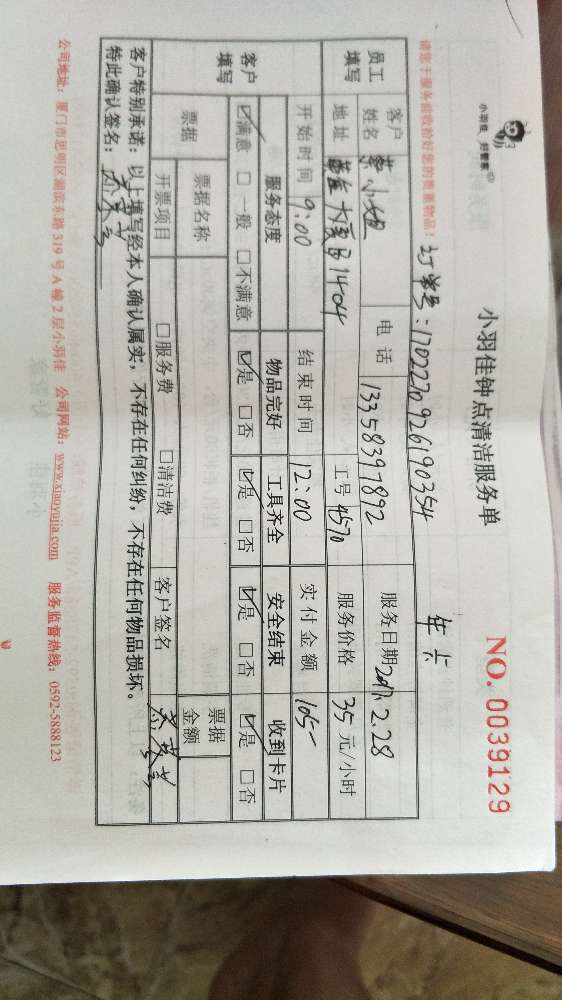 小羽佳 好管家
小羽佳钟点清洁服务单
NO. 0039129
请您于服务前收拾好您的贵重物品！
订单号：1702270926190354
年卡
员工填写
客户姓名 小姐 电话 13358397892 服务日期 2017.2.28
地址 大厦B1404 工号 4570 服务价格 35 元/小时
开始时间 9:00 结束时间 12:00 实付金额 105-
客户填写
服务态度 物品完好 工具齐全 安全结束 收到卡片
☑满意 □一般 □不满意 ☑是 □否 ☑是 □否 ☑是 □否 ☑是 □否
票据 票据名称 票据金额
开票项目 □服务费 □清洁费 客户签名
客户特别承诺：以上填写经本人确认属实，不存在任何纠纷，不存在任何物品损坏。
特此确认签名：
公司地址：厦门市思明区湖滨东路319号A幢2层小羽佳 公司网站：www.xiaoyujia.com 服务监督热线：0592-5888123